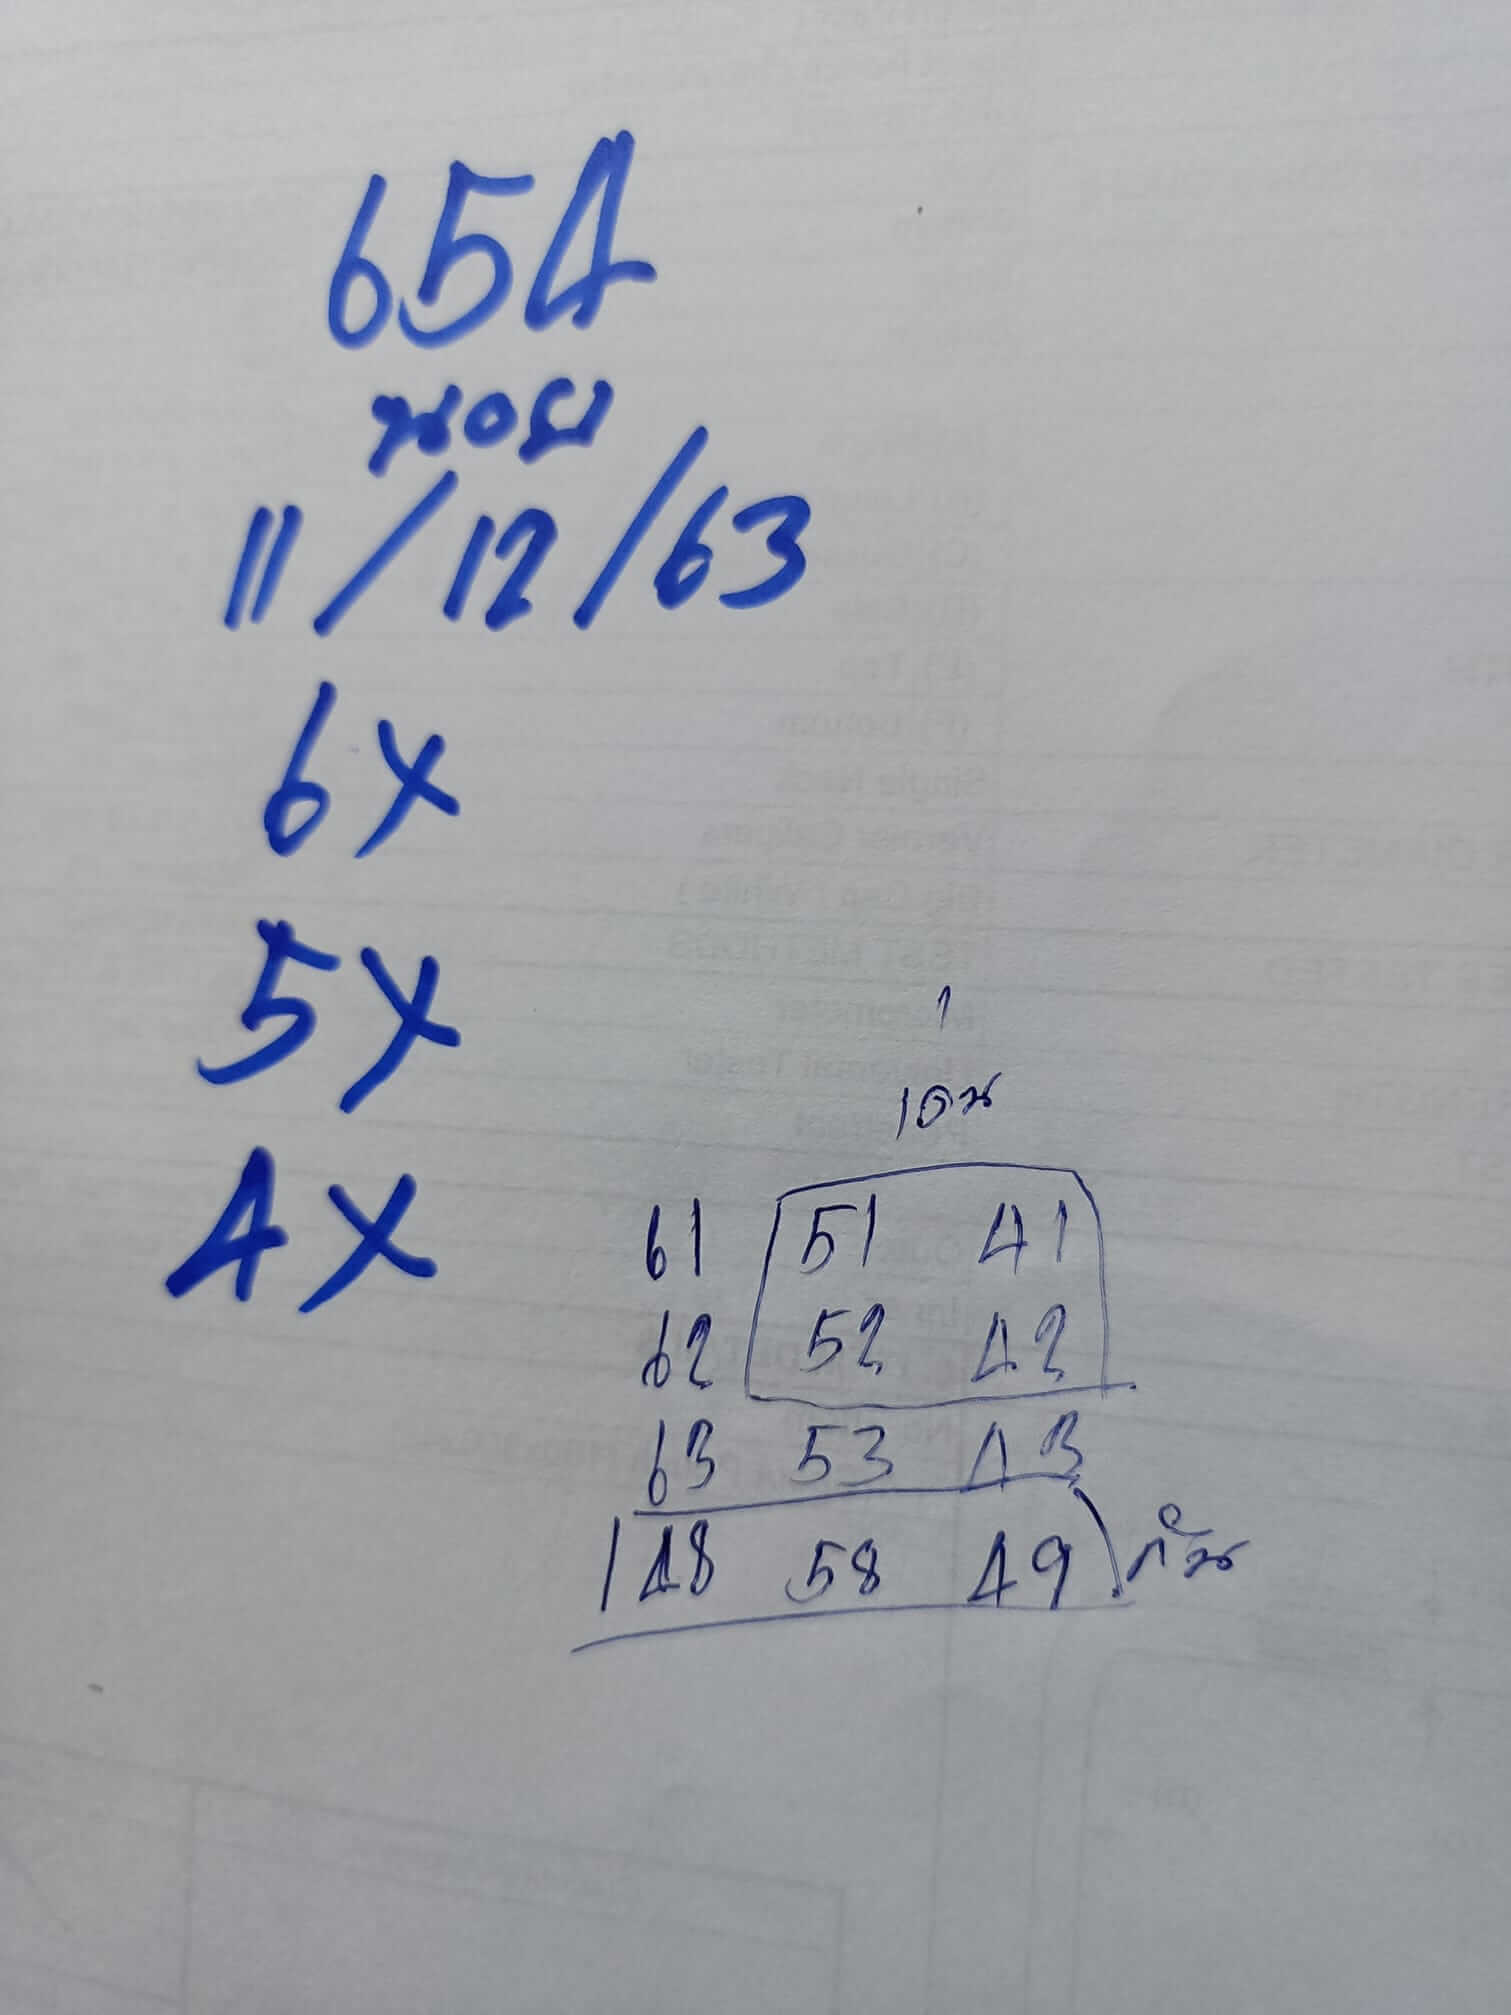 654
นอย
11/12/63
6x
5x
4x
1
เดน
61 51 41
62 52 42
63 53 43
148 58 49 กัน